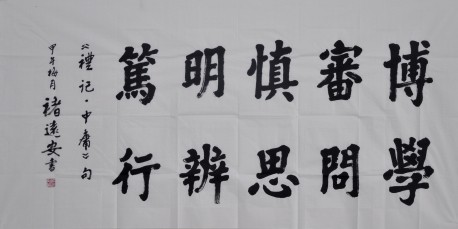 博學
審問
慎思
明辨
篤行
《禮記·中庸》句
甲午梅月 褚遠安書